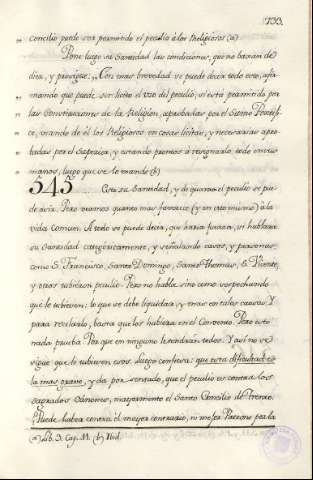 733.
" concilio puede ser permitido el peculio á los Religiosos (a)
Pone luego su Santidad las condiciones, que no
deia, y prosigue: "Con mas brevedad se puede decir todo esto, afir
" mando que puede ser licito el uso del peculio, si está permitido por
" las Constituciones de la Religion, aprobadas por el Sumo Pontifi
" ce, usando de él los Religiosos en cosas licitas, y necesarias apro
" badas por el Superior, y estando promtos á resignarlo todo en sus
" manos, luego que se le mande (b)
545 Esto su Santidad, y de quanto el peculio se pue
de Pero veamos quanto mas favorece (y en esto mismo) á la
vida Comun. A todo se puede decir, que haria fuerza, si hablara
su Santidad categoricamente, y señalando casos, y personas,
como S. Francisco, Santo Domingo, Santo Thomas, S. Vicente,
y otros tubiesen peculio. Pero no habla sino como sospechando
que le tubiesen: lo que se debe liquidar, y mas en tales causas. Y
para revelarlo, basta que los hubiese en el Convento. Pero esto
nada prueba. Por que en ninguno le tendrian todos. Y asi no se
sigue que le tubiesen esos. Luego confiesa: que esta dificultad es
la mas grave, y da por sentado, que el peculio es contra los
sagrados Canones, mayormente el Santo Concilio de Trento.
Puede haber contra él mejor contrario, ni mejor Patrono por la
(a) Lib. 3. Cap. 11. (b) Ibid.